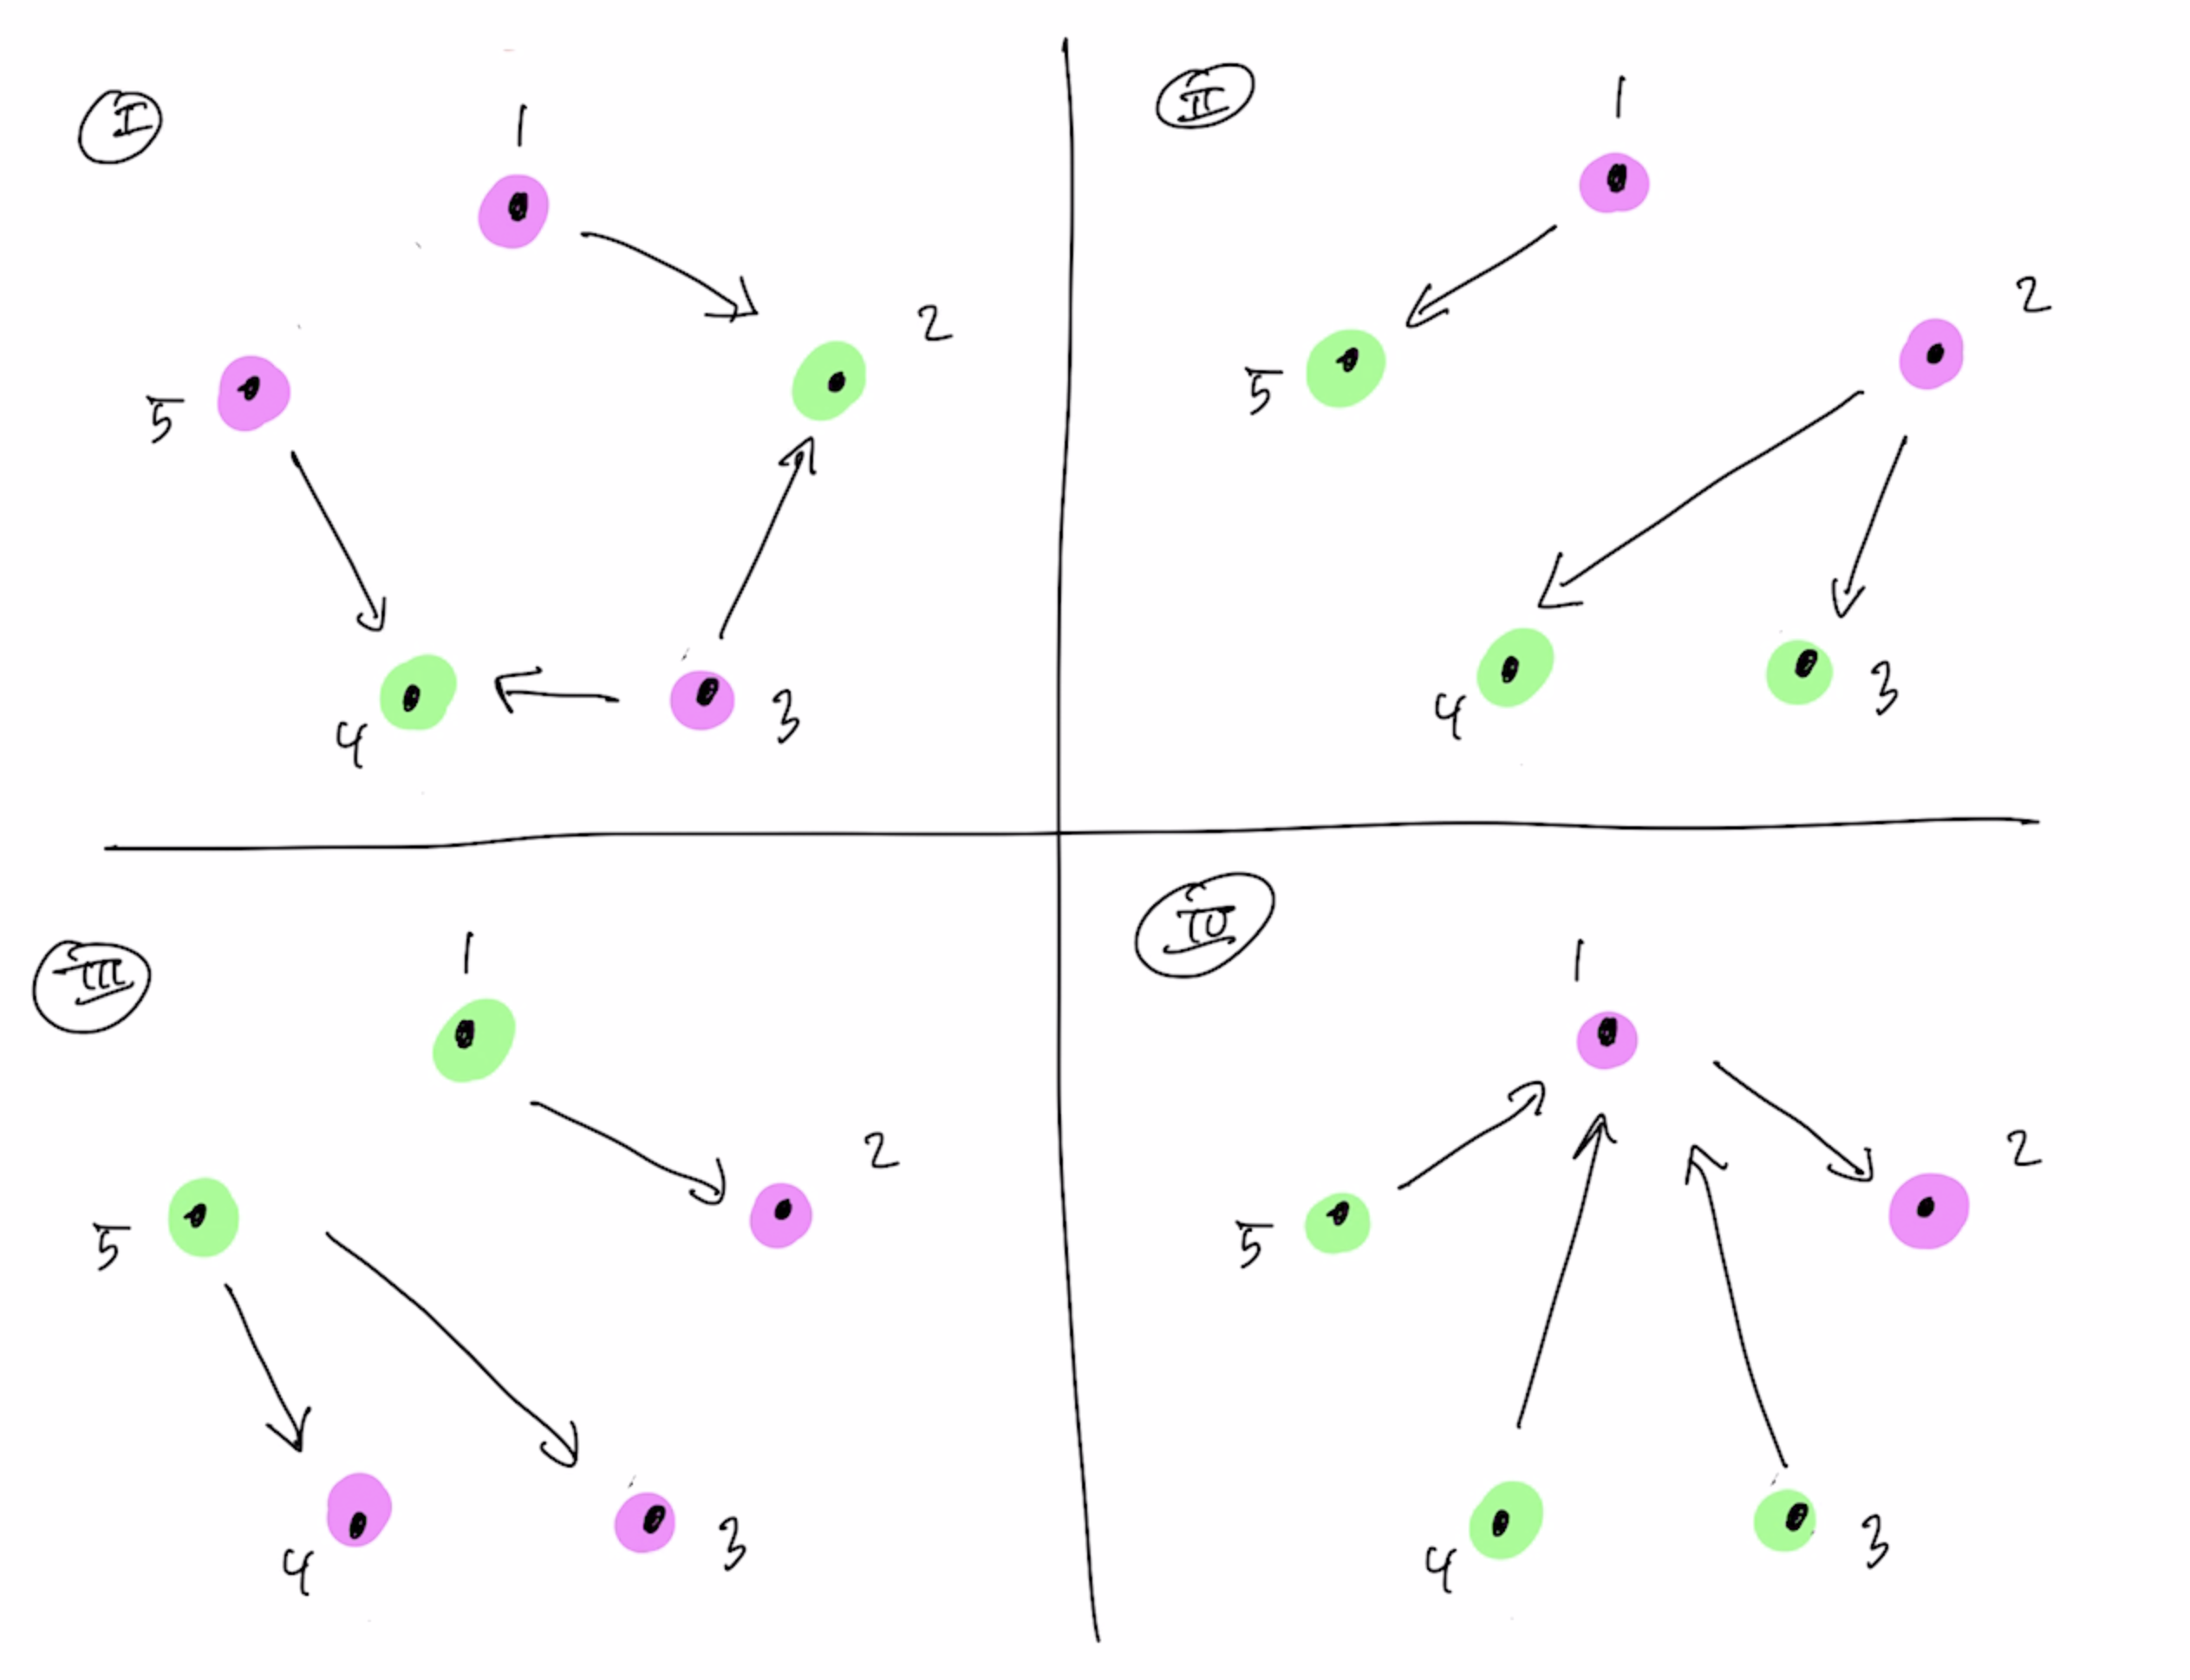 I
1
2
5
4
3
II
1
2
5
4
3
III
1
2
5
4
3
IV
1
2
5
4
3